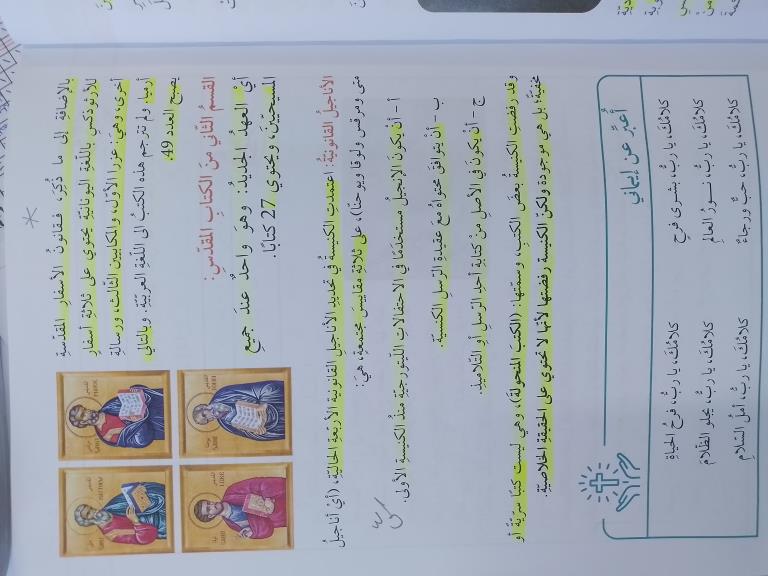 بِالإضافةِ إلى ما ذُكِرَ، فقانونُ الأسفارِ المقدّسةِ
للأرثوذكسِ باللّغةِ اليونانيّةِ يحتوي على ثلاثةِ أسفارٍ
أخرى، وهيَ: عزرا الأوّل، والمكابيين الثّالث، ورسالة
إرميا. ولم تترجم هذه الكتبُ الى اللّغةِ العربيّةِ. وبالتالي
يصبح العدد 49.
القسمُ الثّاني من الكتابِ المقدّسِ:
أيْ العهدُ الجديدُ: وهوَ واحدٌ عندَ جميعِ
المسيحيّينَ، ويحتوي 27 كتابًا.
الأناجيلُ القانونيّةُ: اعتمدتِ الكنيسةُ في تحديدِ الأناجيلِ القانونيّة الأربعةِ الحاليّة، (أيْ أناجيلُ
متى ومرقس ولوقا ويوحنّا)، على ثلاثةِ مقاييسَ مجتمعةٍ، هيَ:
أ- أنْ يكونَ الإنجيلُ مُستخدَمًا في الاحتفالاتِ اللّيتورجيّةِ منذُ الكنيسةِ الأولى.
ب - أنْ يتوافقَ محتواهُ مع عقيدةِ الرّسلِ الكنسيّةِ.
ج - أنْ يكونَ في الأصلِ منْ كتابةِ أحدِ الرّسلِ أو التّلاميذِ.
وقد رفضتِ الكنيسةُ بعضَ الكتبِ، وسمّتها: (الكتب المنحولة)، وهي ليست كتبًا سرّيّةً أو
مخفيّةً؛ بل هي موجودة ولكنّ الكنيسة رفضتها لأنها لا تحتوي على الحقيقةِ الخلاصيّةِ.
أُعبّرُ عن إيماني
كلامُكَ، يا ربُّ، بشرى فرحٍ
كلامُكَ، يا ربُّ، فرحُ الحياةِ
كلامُكَ، يا ربُّ، نورُ العالمِ
كلامُكَ، يا ربُّ، يجلو الظّلامَ
كلامُكَ، يا ربُّ، حبٌّ ورجاءٌ
كلامُكَ، يا ربُّ، أملُ السّلامِ